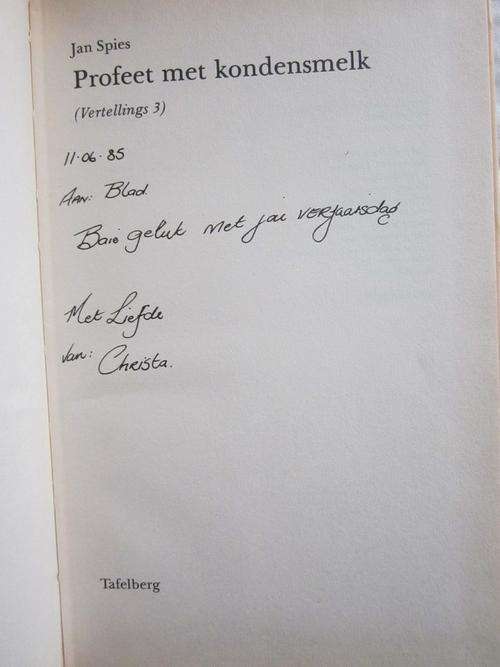 Jan Spies
Profeet met kondensmelk
(Vertellings 3)
11·06·85
AAN: Blad.
Baie geluk met jou verjaarsdag
Met Liefde
Van: Christa.
Tafelberg